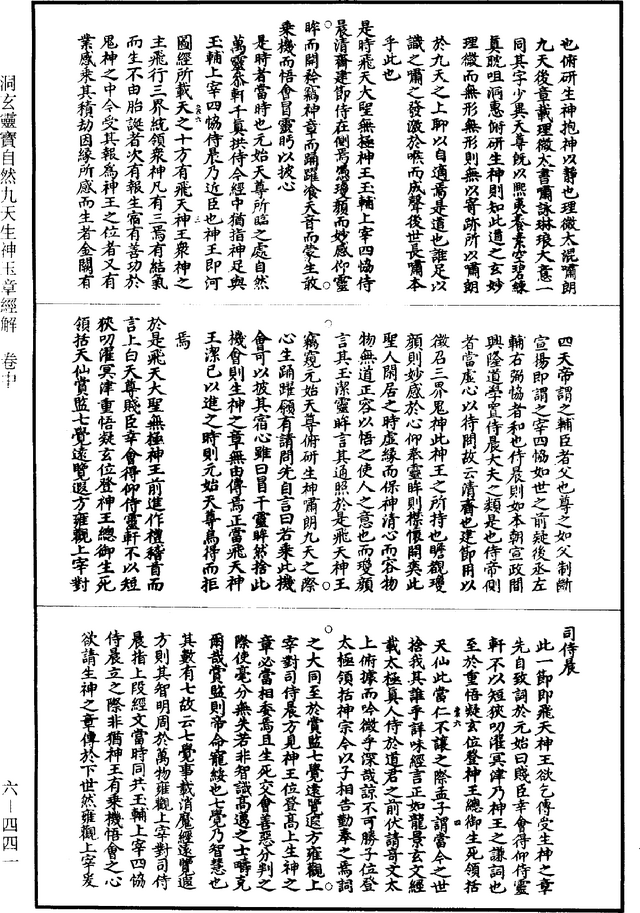 也俯研生神抱神以靜也理微太混嘯朗
九天後章載理微太書嘯詠琳琅大意一
同其字少異天尊旣以熙夷養素空碧練
真耽咀洞惠俯研生神則知此道之玄妙
理微而無形無形則無以寄跡所以嘯朗
於九天之上聊以自適焉是道也誰足以
識之嘯之發激於喉而成聲後世長嘯本
乎此也
是時飛天大聖無極神王玉輔上宰四恊侍
晨清齋建節侍在側焉憑瓊顏而妙感仰靈
眸而開矜竊神章而踊躍飡天音而蒙生敢
乘機而悟會冒靈眄以披心
是時者當時也元始天尊所臨之處自然
萬靈恭軒千真拱侍今經中猶指神足與
玉輔上宰四恊侍晨乃近臣也神王即河
國經所載天之十方有飛天神王衆神之
主飛行三界統領衆神凡有三焉有結氣
而生不由胎誕者次有報生宿有善功於
鬼神之中今受其報爲神王之位者又有
業感乘其積劫因緣所感而生者金闕有
四天帝謂之輔臣者父也尊之如父制斷
宣揚即謂之宰四恊如世之前疑後丞左
輔右弼恊者和也侍晨則如本朝宣政間
興隆道學置侍晨大夫之類是也侍帝側
者當虛心以待問故云清齋也建節用以
徵召三界鬼神此神王之所持也瞻覩瓊
顏則妙感於心仰奉靈眸則襟懷開矣此
聖人閒居之時虛緣而保神清心而容物
物無道正容以悟之使人之意也而瓊顏
言其玉潔靈眸言其通照於是飛天神王
竊窺元始天尊俯研生神嘯朗九天之際
心生踊躍願有請問先自言曰若乘此機
會可以披其宿心雖曰冒干靈眸然捨此
機會則生神之章無由傳焉正當飛天神
王潔己以進之時則元始天尊烏得而拒
焉
於是飛天大聖無極神王前進作禮稽首而
言上白天尊賤臣幸會得仰侍靈軒不以短
狹叨濯冥津重悟疑玄位登神王總御生死
領括天仙賞監七覺遠覽遐方雍觀上宰對
司侍晨
此一節即飛天神王欲乞傳受生神之章
先自致詞於元始曰賤臣幸會得仰侍靈
軒不以短狹叨濯冥津乃神王之謙詞也
至於重悟疑玄位登神王總御生死領括
天仙此當仁不讓之際孟子謂當今之世
捨我其誰乎詳味經言正如龍景玄文經
載太極真人侍於道君之前伏請奇文太
上俯據而吟微乎深哉諒不可勝子位登
太極領括神宗今以子相告勤奉之焉詞
之大同至於賞監七覺遠覽遐方雍觀上
宰對司侍晨方見神王位登高上生神之
章必當相委焉且生死交會善惡分判之
際使毫分無失若非智識高邁之士疇克
爾哉賞監則帝命寵綏也七覺乃智慧也
其數有七故云七覺事載消魔經遠覽遐
方則其智明周於萬物雍觀上宰對司侍
晨指上段經文當時同共玉輔上宰四恊
侍晨立之際非猶神王有乘機悟會之心
欲請生神之章傳於下世然雍觀上宰爰
洞玄靈寶自然九天生神玉章經解 卷中
六—四四一